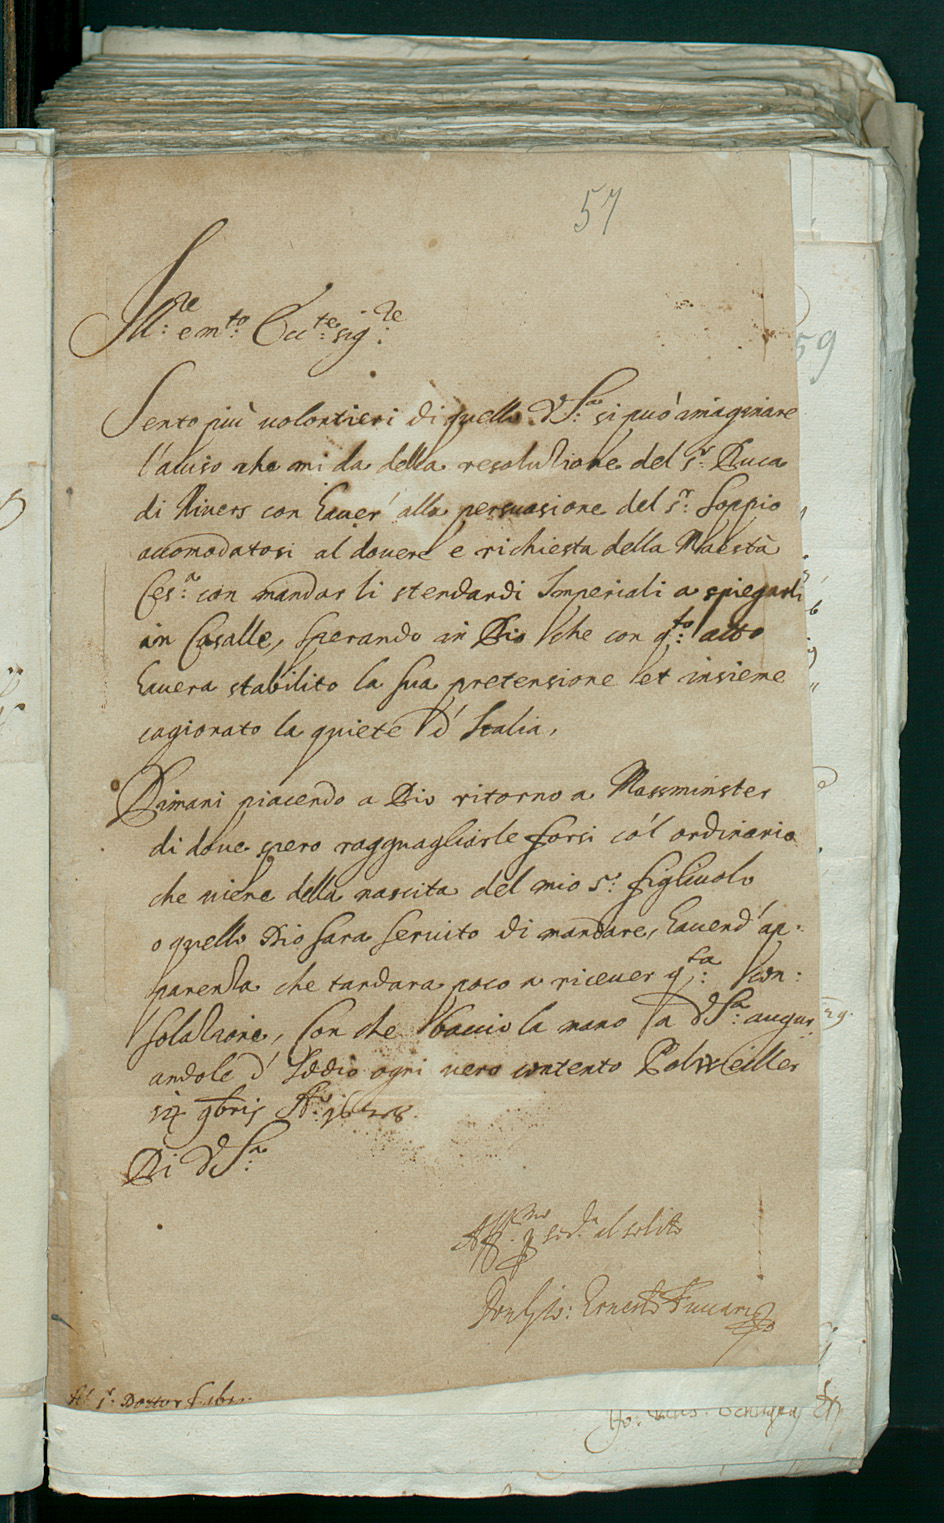 57
Ill.re e m.to Ecc.te sig.re
Sento più uolontieri di quello V.S.a si può imaginare
l'auiso che mi da della resolutione del S.r Duca
di Niuers con hauer' alla persuasione del S.r Soppio
accomodatosi al douere e richiesta della Maestà
Ces.a con mandar li stendardi Imperiali a spiegarli
in Casalle, sperando in Dio che con q.to atto
hauera stabilito la sua pretensione et insieme
cagionato la quiete d' Italia.
Dimani piacendo a Dio ritorno a Massminster
di doue spero ragguagliarle forsi co'l ordinario
che uiene della nascita del mio S.r figliuolo
o quello Dio sara seruito di mandare, hauend' ap:
parenza che tardara poco a riceuer q.sta con:
solatione, Con che bacio la mano a V.S.a augur
andole d' Iddio ogni uero contento Polweiller
9bris A.o 1628
Di V.S.a
Aff.mo p ser.r al solito
Ernesto Fuccari
Al S.r Dottor Faber
59